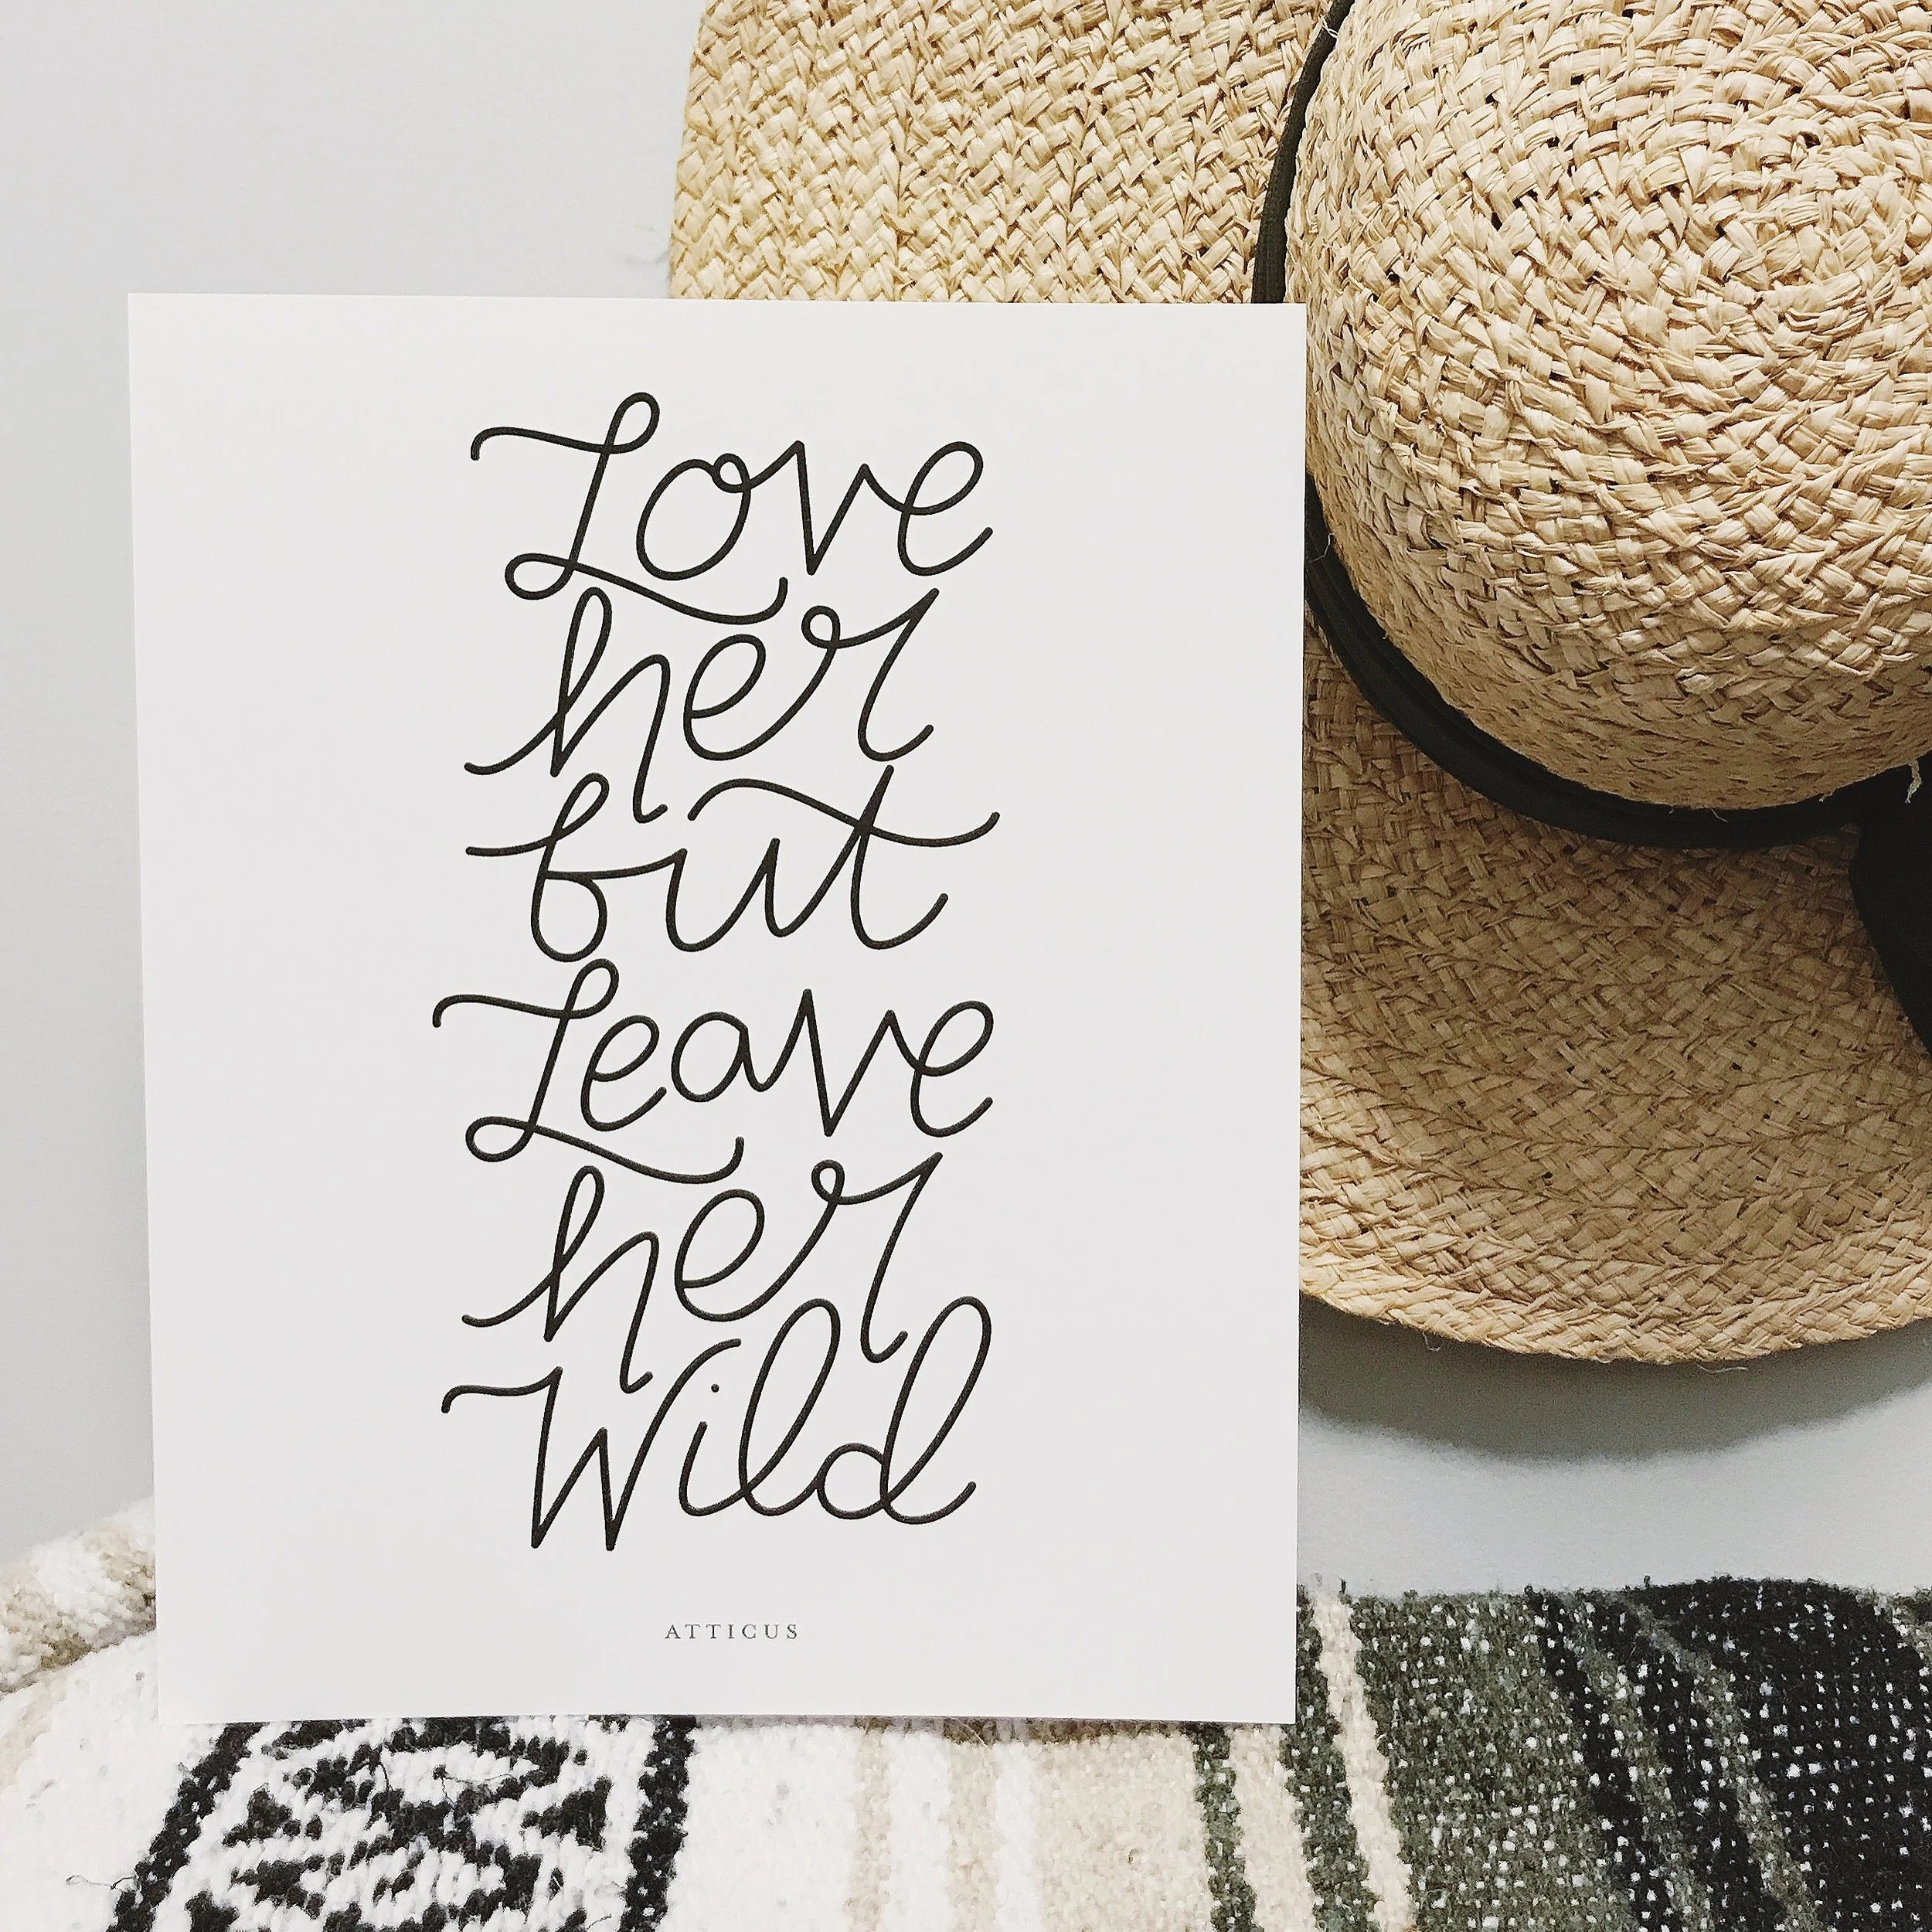 Love
her
but
Leave
her
Wild
ATTICUS